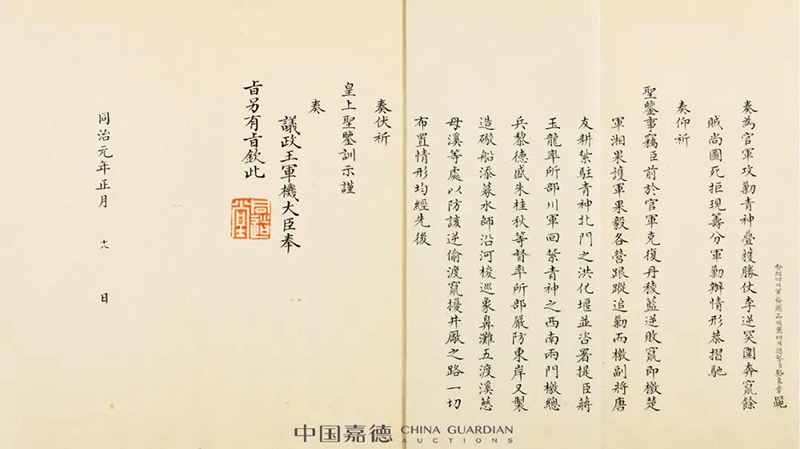 奏為官軍攻勦青神疊獲勝仗李逆突圍奔竄餘
賊尚圖死拒現籌分軍勦辦情形恭摺馳
奏仰祈
聖鑒事竊臣前於官軍克復丹稜藍逆敗竄即檄楚
軍湘果護軍果毅各營跟蹤追勦而檄副將唐
友耕紮駐青神北門之洪化堰並咨署提臣蔣
玉龍率所部川軍回紮青神之西南兩門檄總
兵黎德盛朱桂秋等督率所部嚴防東岸又製
造礮船添募水師沿河梭巡象鼻灘五渡溪慈
母溪等處以防該逆偷渡竄擾井厰之路一切
布置情形均經先後
奏伏祈
皇上聖鑒訓示謹
奏
議政王軍機大臣奉
旨另有旨欽此
同治元年正月 十八 日
中国嘉德 CHINA GUARDIAN
AUCTIONS